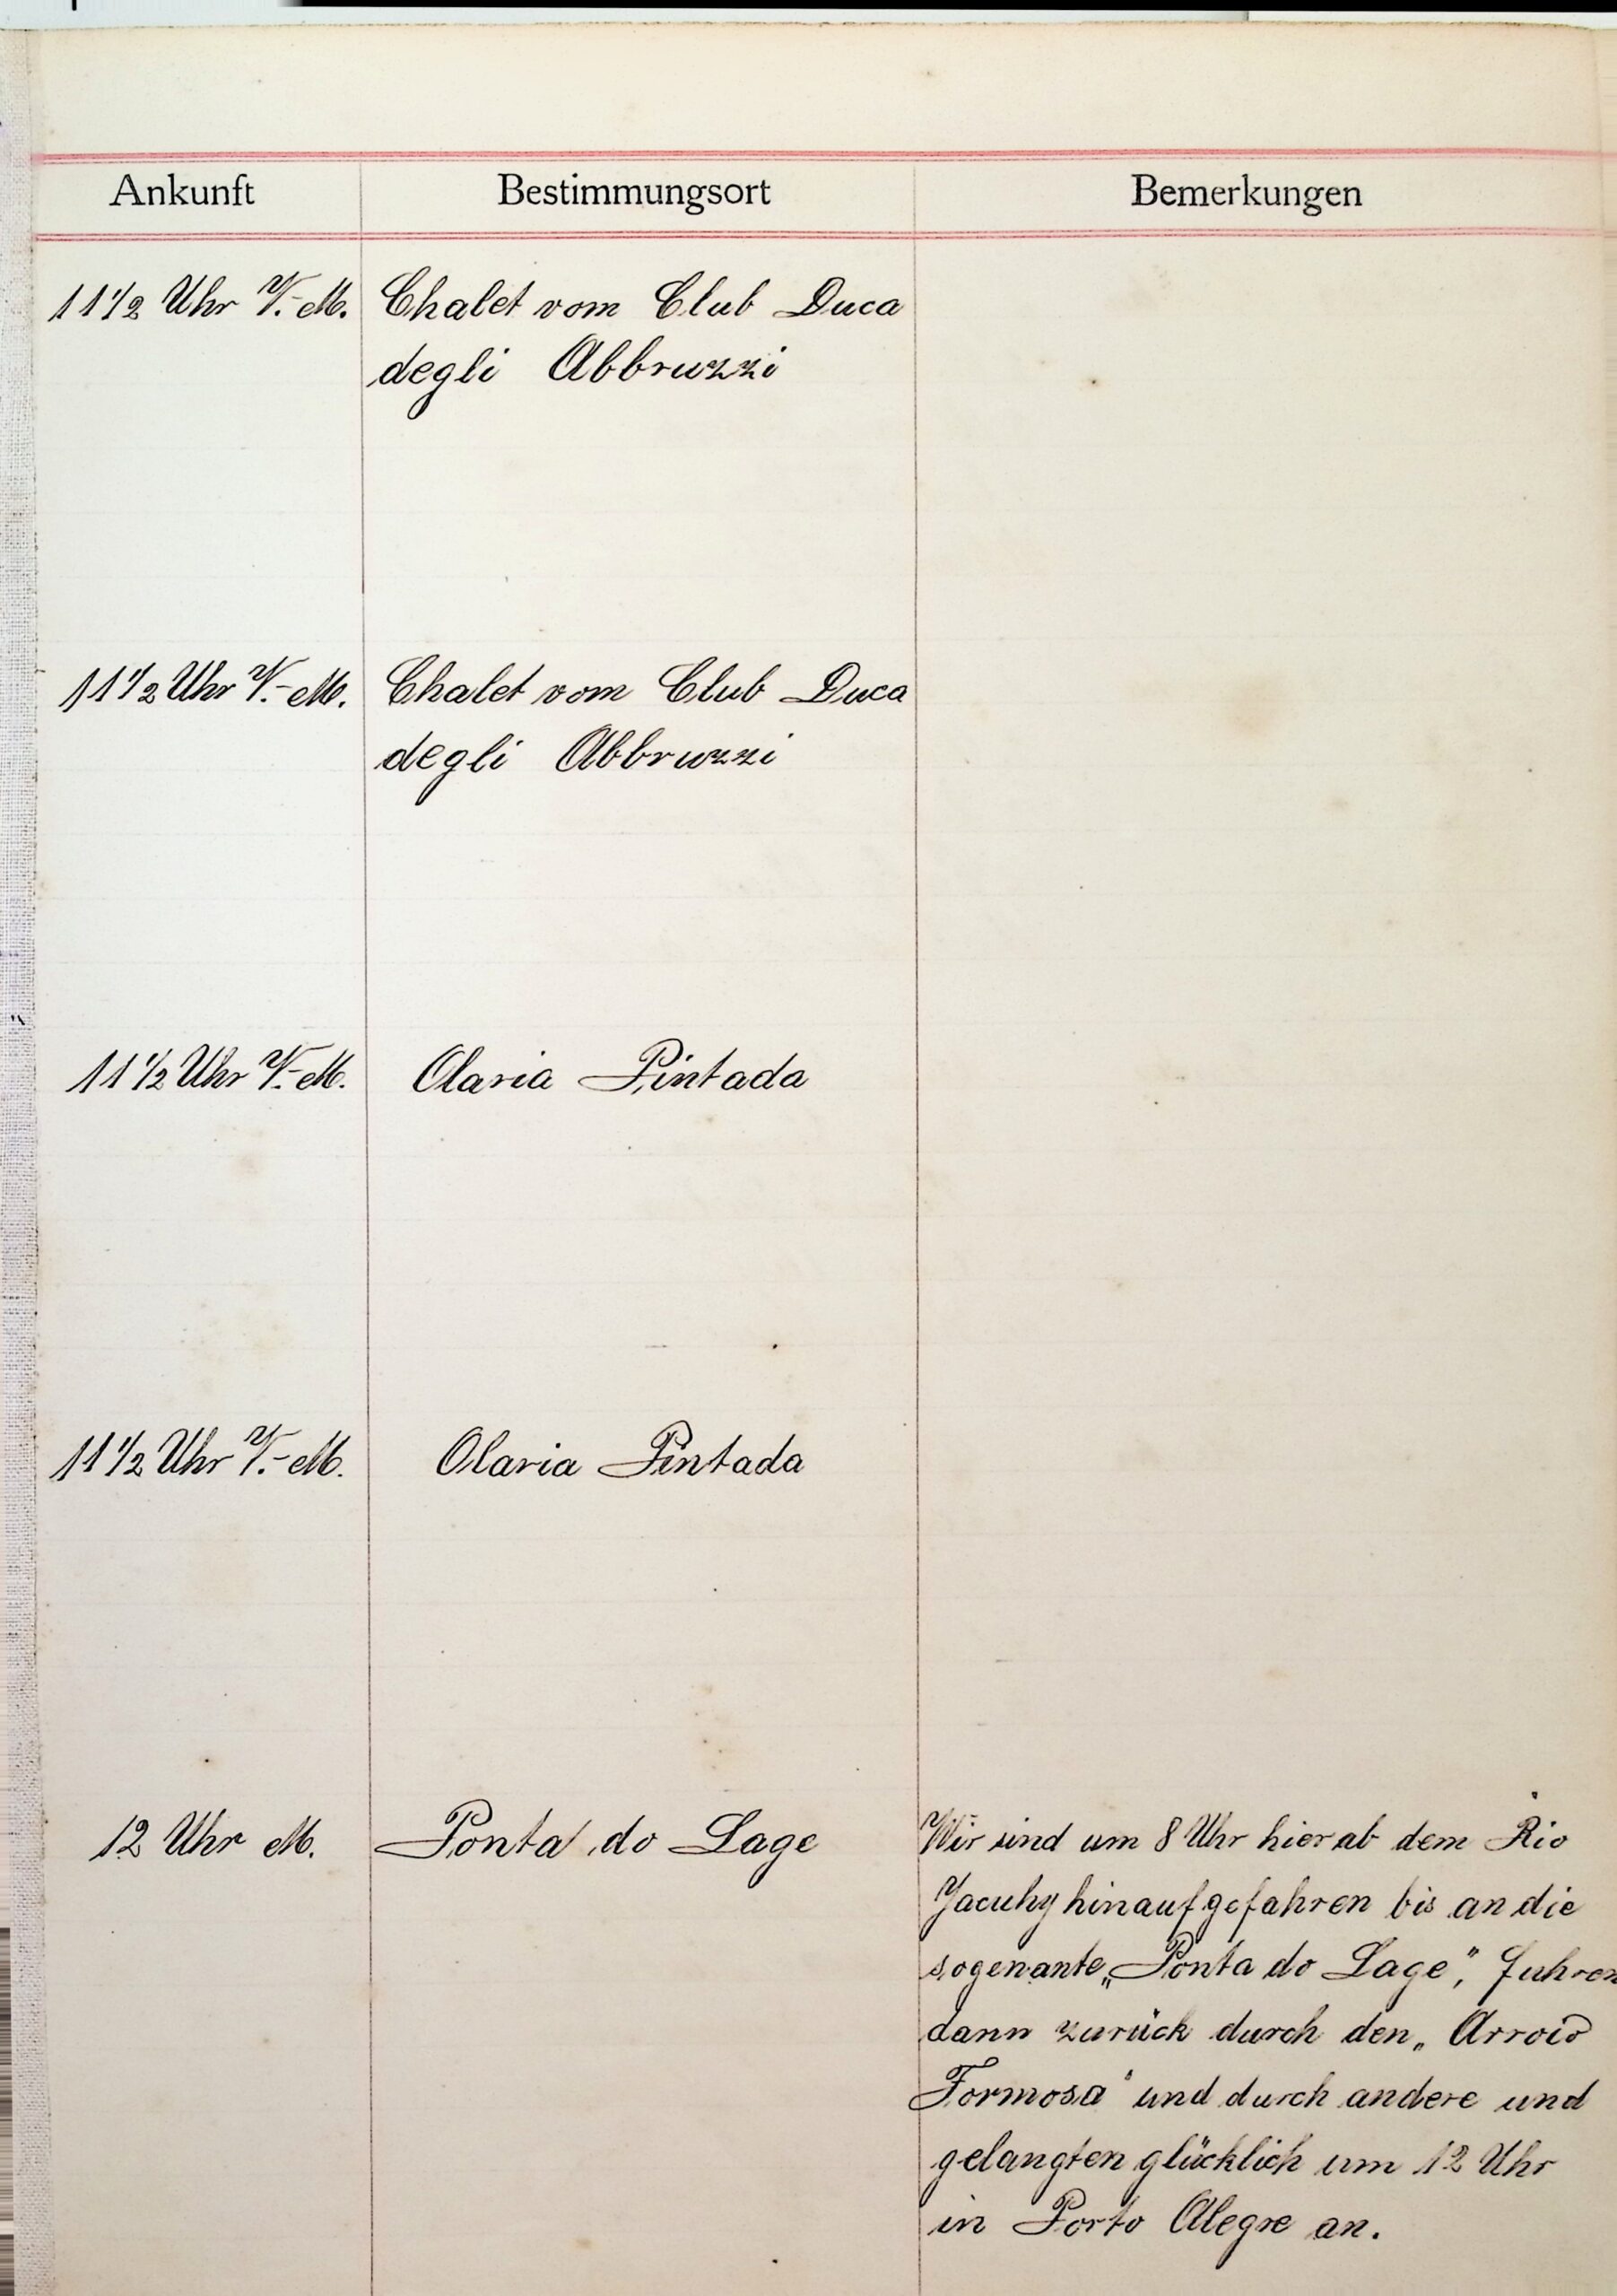 Ankunft Bestimmungsort Bemerkungen
11 1/2 Uhr V.-M. Chalet vom Club Duca
degli Abbruzzi
11 1/2 Uhr V.-M. Chalet vom Club Duca
degli Abbruzzi
11 1/2 Uhr V.-M. Olaria Pintada
11 1/2 Uhr V.-M. Olaria Pintada
12 Uhr M. Ponta do Lage Wir sind um 8 Uhr hier ab dem Rio
Jacuhy hinaufgefahren bis an die
sogenante „Ponta do Lage", fuhren
dann zurück durch den „Arroio
Formosa" und durch andere und
gelangten glücklich um 12 Uhr
in Porto Alegre an.